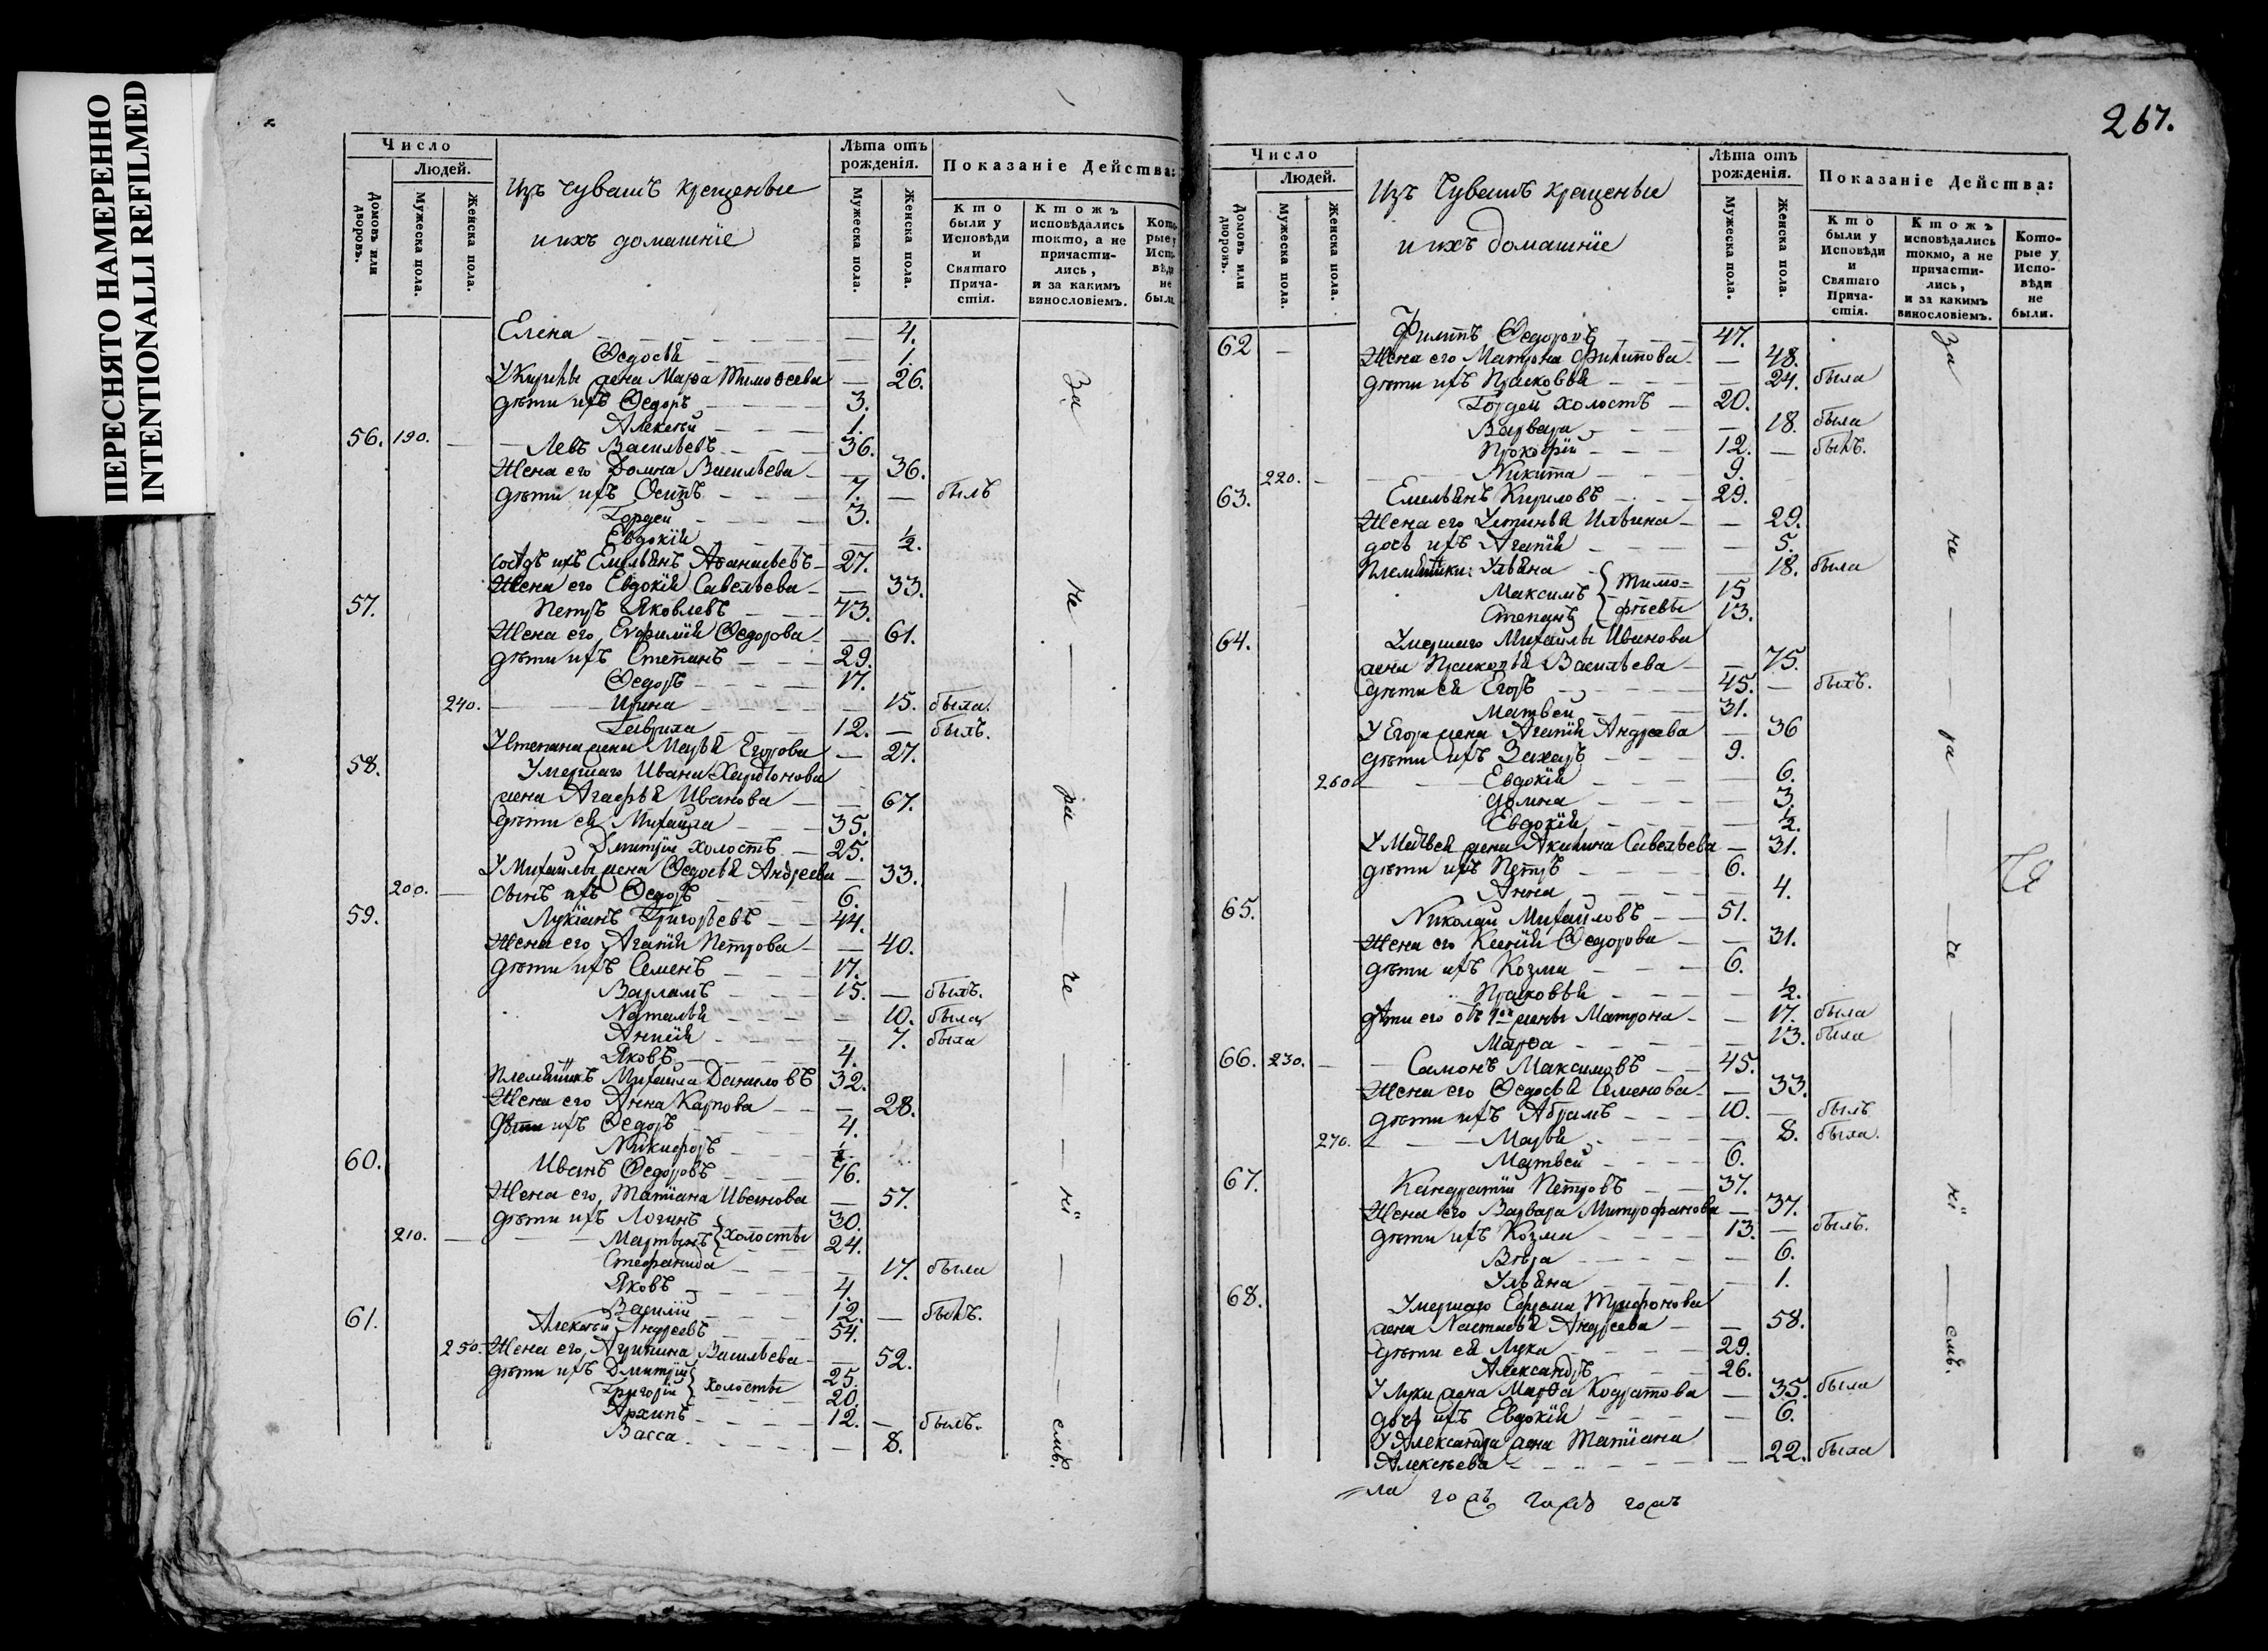 ПЕРЕСНЯТО НАМЕРЕННО
INTENTIONALLI REFILMED
Число
Людей.
Домовъ или дворовъ.
Мужеска пола.
Женска пола.
Изъ чувашъ крещеные
и ихъ домашніе
Лѣта отъ рожденія.
Мужеска пола.
Женска пола.
Показаніе Действа:
Кто были у Исповѣди и Святаго Прича-стія.
Ктожъ исповѣдались токмо, а не причасти-лись, и за какимъ винословіемъ.
Кото-рые у Испо-вѣди не были.
Елена 4.
Ѳедосья 1.
У Кирилы жена Марѳа Тимоѳеева 26.
дѣти ихъ Ѳедоръ 3.
Алексѣй 1.
56. 190. Левъ Васильевъ 36.
Жена его Домна Васильева 36.
дѣти ихъ Осипъ 7. былъ
Гордей 3.
Евдокія ½.
сосѣдъ ихъ Емельянъ Аѳанасьевъ 27.
Жена его Евдокія Савельева 33.
57. Петръ Яковлевъ 73.
Жена его, Евфимія Ѳедорова 61.
дѣти ихъ Степанъ 29.
Ѳедоръ 17.
240. Ирина 15. была.
Гаврила 12. былъ.
У Степана жена Марья Егорова 27.
58. Умершаго Ивана Харитонова
жена Агафья Иванова 67.
дѣти ея Михайла 35.
Дмитрій холостъ 25.
У Михайлы жена Ѳедосья Андреева 33.
200. сынъ ихъ Ѳедоръ 6.
59. Лукіанъ Григорьевъ 44.
Жена его Агапія Петрова 40.
дѣти ихъ Семенъ 17.
Варламъ 15. былъ.
Наталья 10. была
7. была
Яковъ 4.
Племянникъ Михайла Даниловъ 32.
Жена его Анна Карпова 28.
дѣти ихъ Ѳедоръ 4.
Никифоръ
60. Иванъ Ѳедоровъ 76.
Жена его, Татіана Иванова 57.
дѣти ихъ Логинъ 30.
210. Мартынъ } холосты 24.
Стефанида 17. была
Яковъ 4.
Василій 12. былъ.
61. Алексѣй Андреевъ 54.
250. Жена его, Агрипина Васильева 52.
дѣти ихъ Дмитрій 25.
Григорій } холосты 20.
Архипъ 12. былъ.
Васса 8.
За не ра че ні емъ.
267.
Число
Людей.
Домовъ или дворовъ.
Мужеска пола.
Женска пола.
Изъ Чувашъ крещеные
и ихъ домашніе
Лѣта отъ рожденія.
Мужеска пола.
Женска пола.
Показаніе Действа:
Кто были у Исповѣди и Святаго Прича-стія.
Ктожъ исповѣдались токмо, а не причасти-лись, и за какимъ винословіемъ.
Кото-рые у Испо-вѣди не были.
62 Филипъ Ѳедоровъ 47.
Жена его Матрона Филипова 48.
дѣти ихъ Прасковья 24. была
Гордей холостъ 20.
Варвара 18. была
Прокофій 12. былъ.
220. Никита 9.
63. Емельянъ Кириловъ 29.
Жена его Устинья Ильина 29.
дочь ихъ Агапія 5.
Племянники: Ульяна 18. была
Максимъ } Тимо= 15
Степанъ } фѣевы 13.
64. Умершаго Михайлы Иванова
жена Прасковья Васильева 75.
дѣти ея Егоръ 45. былъ.
Матвей 31.
У Егора жена Агапія Андреева 36
дѣти ихъ Захаръ 9.
260 Евдокія 6.
Домна 3.
Евдокія ½.
У Матвея жена Акилина Савельева 31.
дѣти ихъ Петръ 6.
Анна 4.
65. Николай Михайловъ 51.
Жена его Ксенія Ѳедорова 31.
дѣти ихъ Козма 6.
Прасковья ½.
дѣти его отъ 1ой жены Матрона 17. была
Марѳа 13. была
66. 230. Самонъ Максимовъ 45.
Жена его Ѳедосья Семенова 33.
дѣти ихъ Абрамъ 10. былъ
270. Марья 8. была.
Матвей 6.
67. Кандратій Петровъ 37.
Жена его Варвара Митрофанова 37.
дѣти ихъ Козма 13. былъ.
Вѣра 6.
Ульяна 1.
68. Умершаго Ефрема Трифонова
жена Настасья Андреева 58.
дѣти ея Лука 29.
Александръ 26.
У Луки жена Марѳа Кодратова 35. была
дочь ихъ Евдокія 6.
У Александра жена Татіана
Алексѣева 22. была
За не ра че ні емъ.